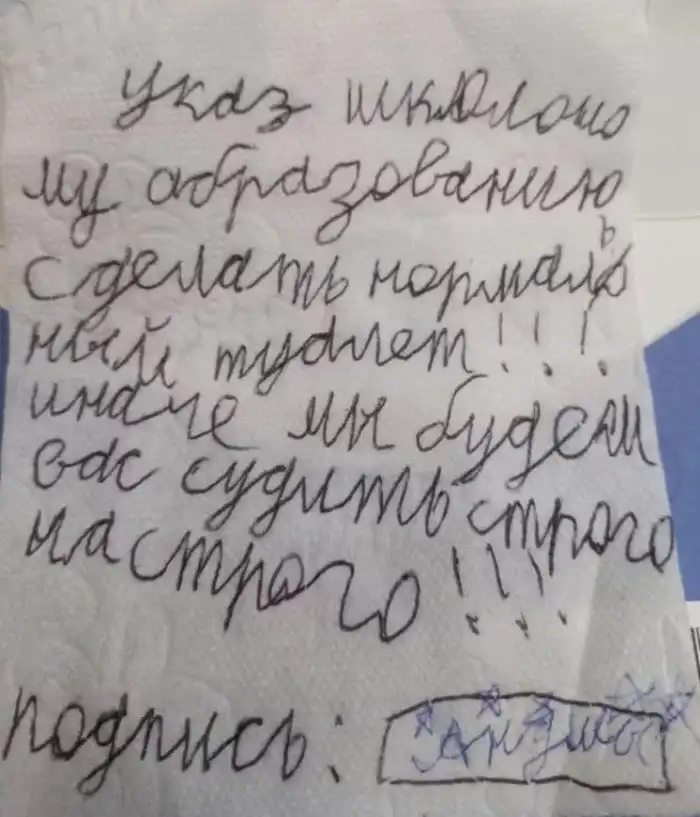 указ шкloлоно
му образованию
сделать нормаль
ный туалет!!!
иначе мы будем
вас судить строго
настрого!!!
подпись: